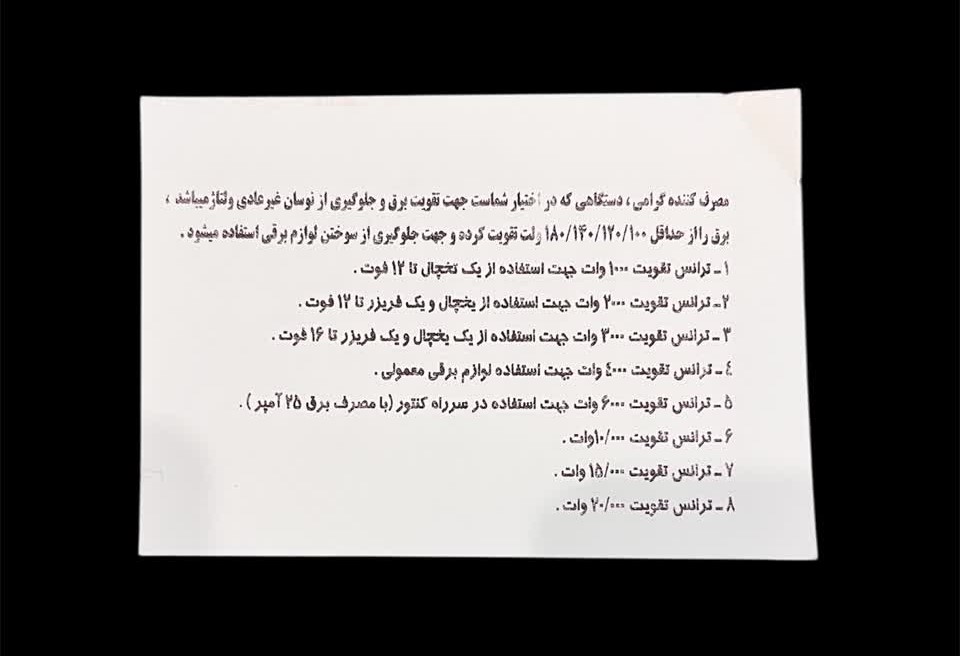 مصرف کننده گرامی ، دستگاهی که در اختیار شماست جهت تقویت برق و جلوگیری از نوسان غیرعادی ولتاژ میباشد ،
برق را از حداقل ۱۸۰/۱۴۰/۱۲۰/۱۰۰ ولت تقویت کرده و جهت جلوگیری از سوختن لوازم برقی استفاده میشود .
۱ ـ ترانس تقویت ۱۰۰۰ وات جهت استفاده از یک یخچال تا ۱۲ فوت .
۲ ـ ترانس تقویت ۲۰۰۰ وات جهت استفاده از یخچال و یک فریزر تا ۱۲ فوت .
۳ ـ ترانس تقویت ۳۰۰۰ وات جهت استفاده از یک یخچال و یک فریزر تا ۱۶ فوت .
٤ ـ ترانس تقویت ٤۰۰۰ وات جهت استفاده لوازم برقی معمولی .
۵ ـ ترانس تقویت ۶۰۰۰ وات جهت استفاده در سرراه کنتور (با مصرف برق ۲۵ آمپر ) .
۶ ـ ترانس تقویت ۱۰/۰۰۰ وات .
۷ ـ ترانس تقویت ۱۵/۰۰۰ وات .
۸ ـ ترانس تقویت ۲۰/۰۰۰ وات .